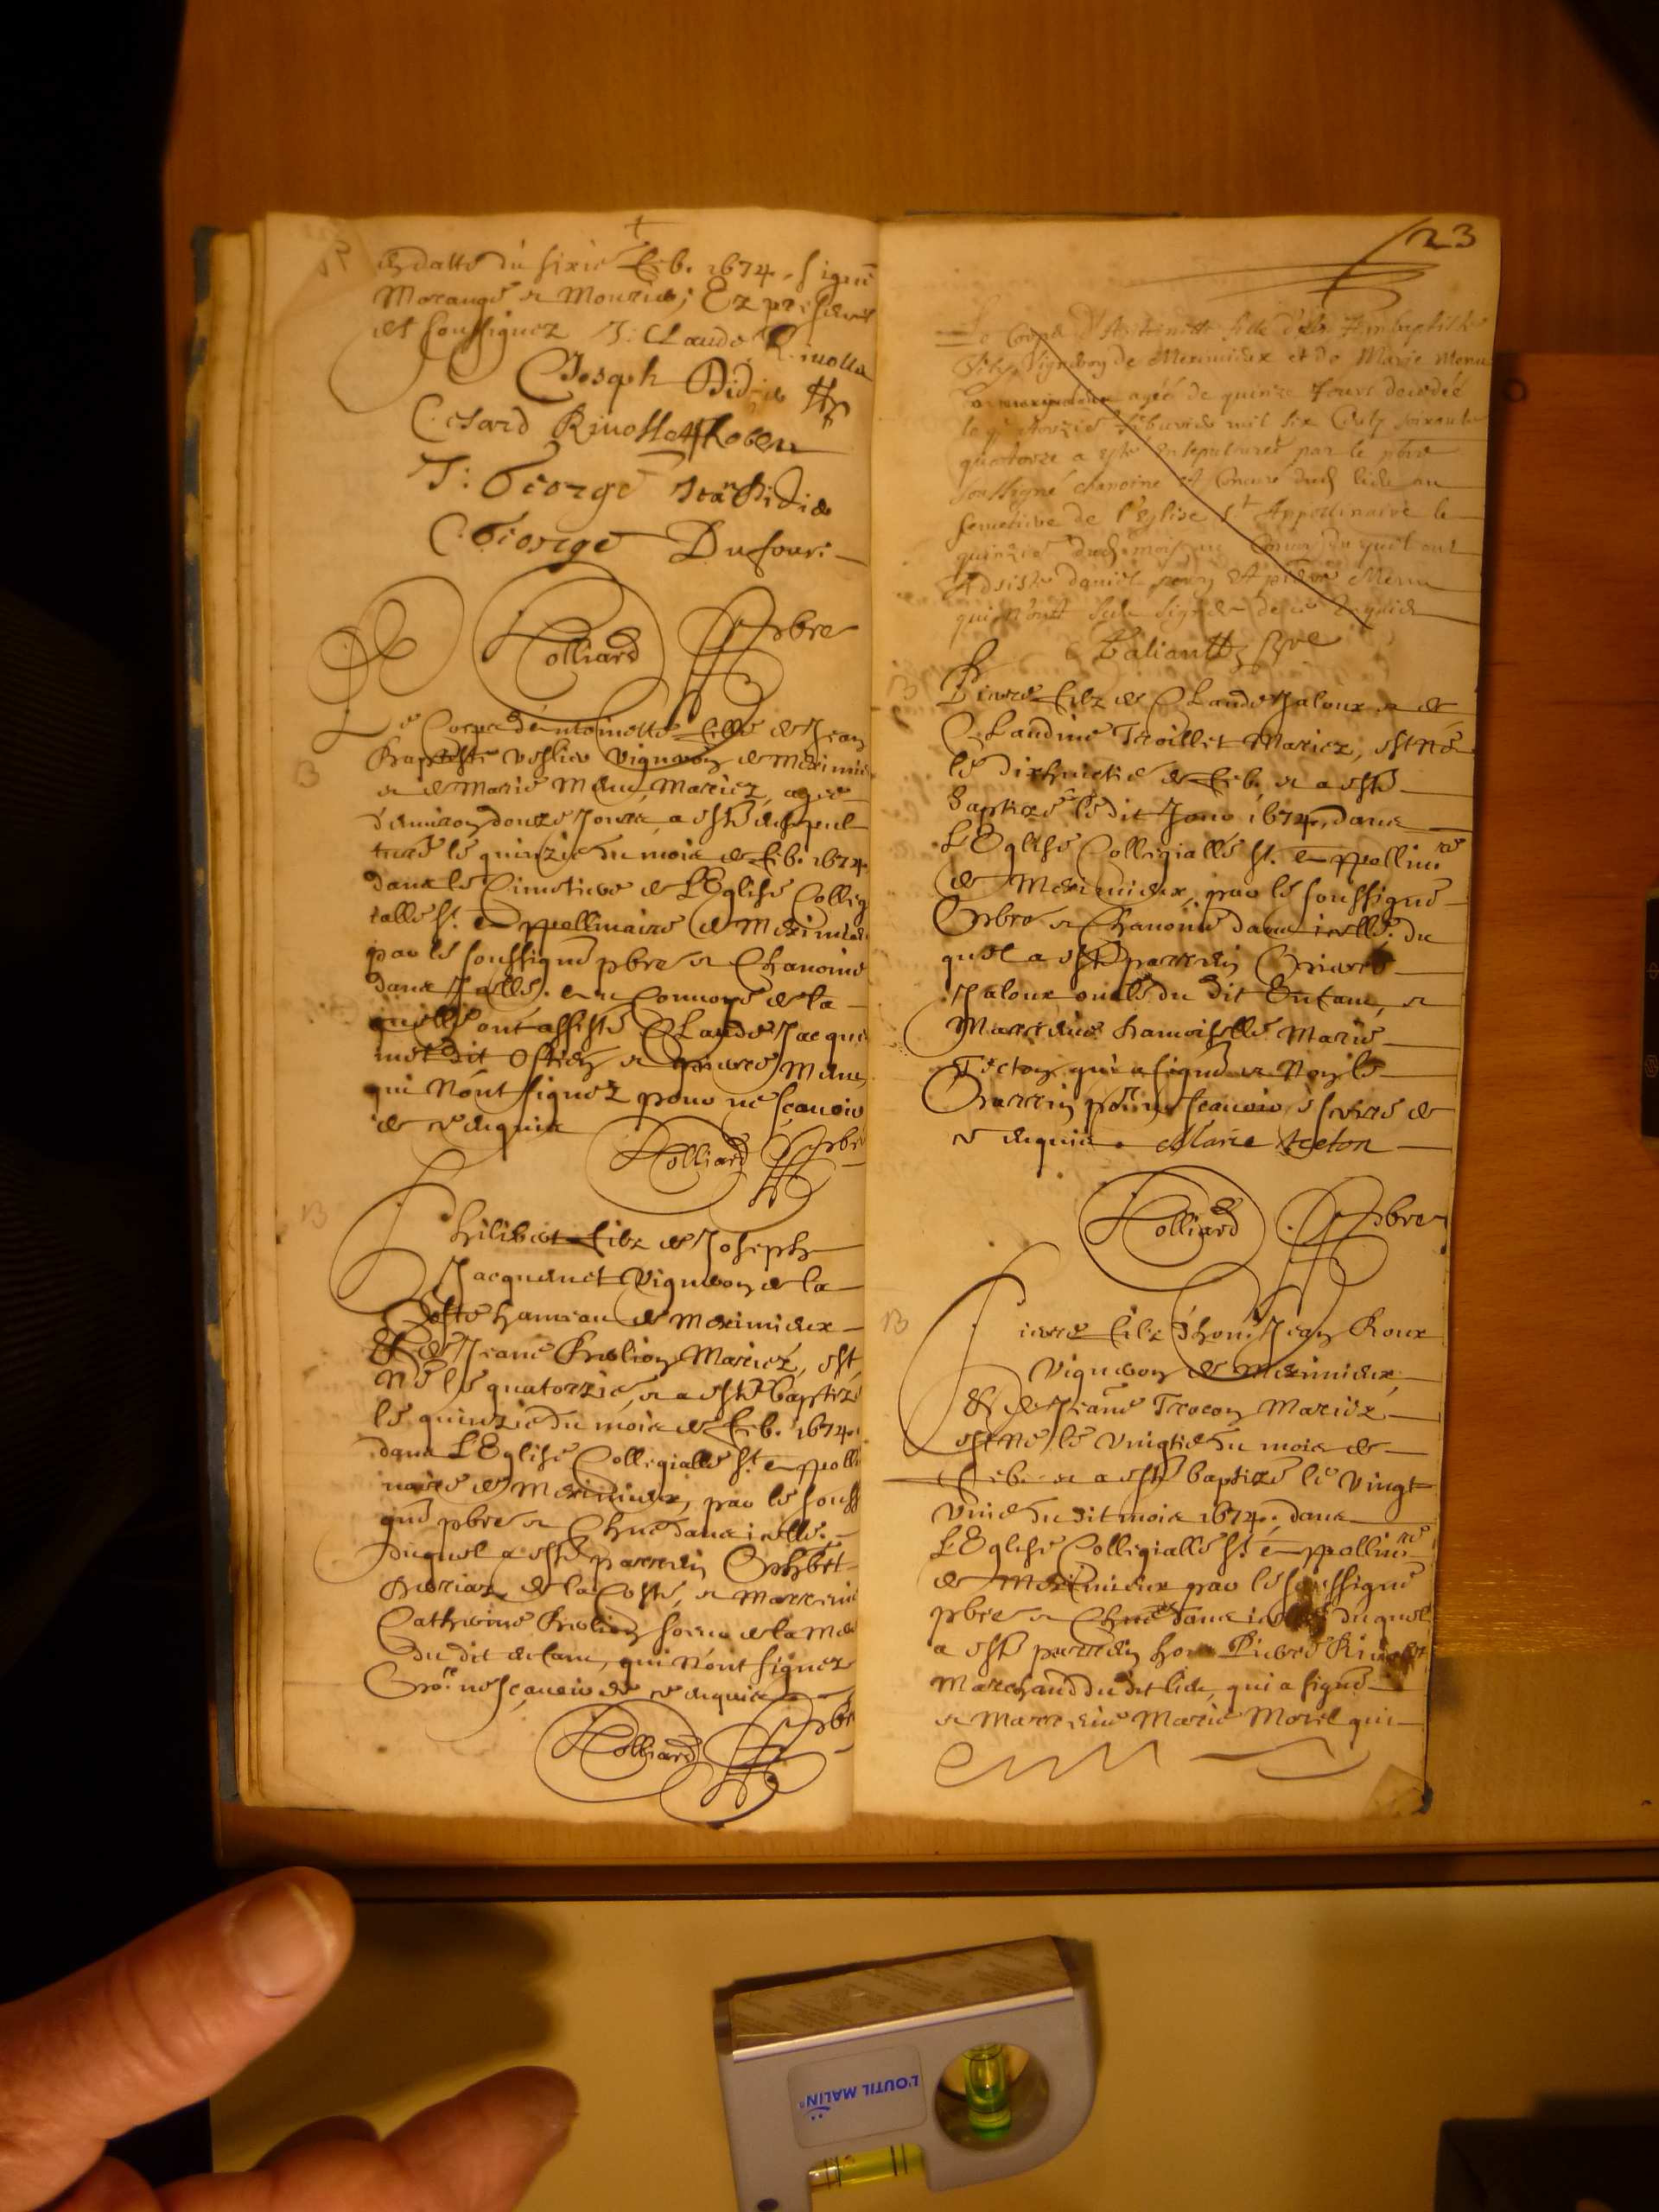 en datte du sixie feb. 1674. signé
Morange et Mourier; Et presents
et soussignez J: Claude Rimolla
Joseph Didie
Cesard Rimosse
J: George Jean Didie
C: George Dufour
Holliard Pbre
Le Corps d'Antoinette fille de Jean
Baptiste Vignron de Meximie
et de Marie Menu, Mariez, agée
d'environ douze Jours, a esté deppeul
turé le quinzie du mois de feb. 1674.
dans le Cimetiere de L'Eglise Colleg
ialle St. Appellinaire de Meximie
par le soussigné pbre et Chanoine
dans Icelle. au Convoye de la
quelle ont assisté Claude Jacque
met dit et pierre Menu
qui n'ont signez pour ne sçavoir
de ce enquis
Holliard Pbre
Philibert filz de Joseph
Jacquemet Vigneron de la
Coste hameau de Meximieux
Et de Jeane Mariez, est
Né le quatorzie, et a esté baptizé
le quinzie du mois de feb. 1674.
dans L'Eglise Collegialle St. Appolli
naire de Meximieux, par le souss
gné pbre et Chne dans icelle.
duquel a esté parrein Phbert
de la Coste, et Marreine
Catherine soeur de la Mere
du dit enfant, qui n'ont signez
Pour ne sçavoir de ce enquis
Holliard Pbr
123
Le Corps d'Antoinette fille d'eh Jeanbaptiste
Vigneron de Meximieux et de Marie Menu
agée de quinze Jours decedée
le febvrier mil six Cents soixante
quatorze a esté ensepulturée par le pbre
soussigné chanoine et Concuré dud lieu au
semetiere de l'Eglise St Appollinaire le
quinzie dud mois au Convoy duquel ont
Adsisté daniel et pierre Menu
qui n'ont sceu signer de ce Enquis
Pbre
Pierre filz de Claude Jaloux et de
Claudine Troillet Mariez, est Né
le dixhuictie de feb. et a esté
Baptizé le dit Jour 1674, dans
L'Eglise Collegialle St. Appellinre
de Meximieux, par le soussigné
Pbre et Chanoine dans icelle. du
quel a esté parrein Pierre
Jaloux oncle du dit Enfant, et
Marreine hamoiselle Marie
Teton, qui a signé et Non le
Parrein pour ne sçavoir escrire de
ce enquis. Marie teton
Holliard Pbre
Pierre filz d'hon. Jean Roux
Vigneron de Meximieux,
Et de Jeane Trocon Mariez,
est Né le Vingtie du mois de
feb. et a esté baptizé le Vingt
Unie du dit mois 1674. dans
L'Eglise Collegialle St. Appollinre
de Meximieux par le soussigné
pbre et Chne dans icelle duquel
a esté parrein hon. Pierre
Marchand du dit lieu, qui a signé
et Marreine Marie Morel qui
L'OUTIL MALIN